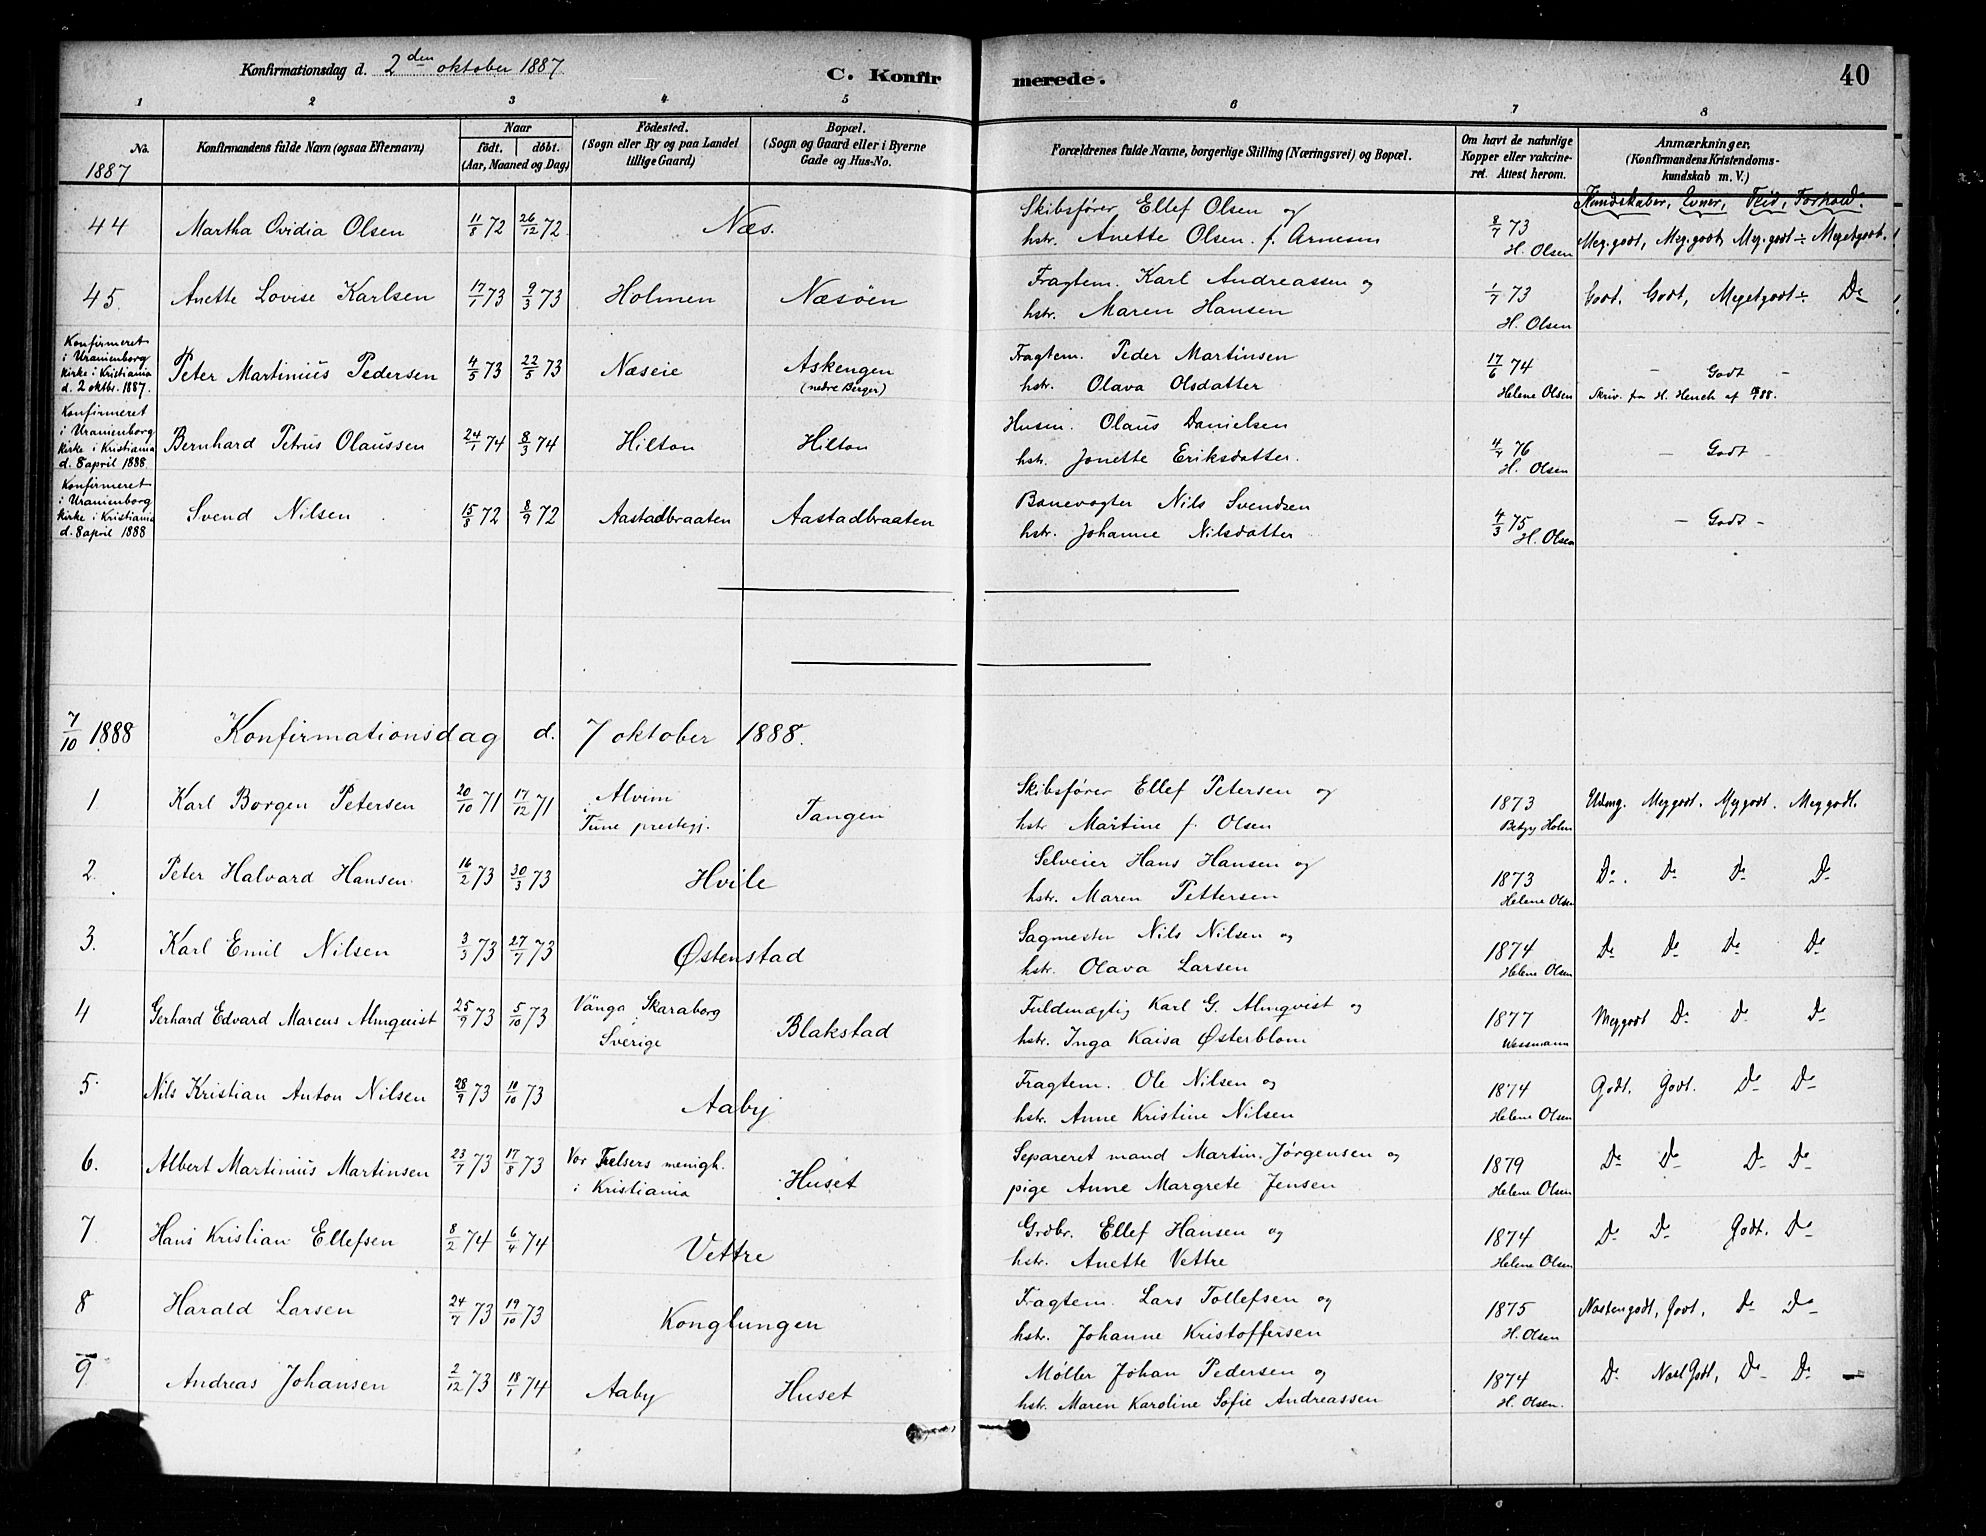 Konfirmationsdag d. 2den oktober 1887
C. Konfirmerede.
40
1 2 3 4 5 6 7 8
No.
1887
Konfirmandens fulde Navn (ogsaa Efternavn)
Naar
født. døbt.
(Aar, Maaned og Dag)
Fødested.
(Sogn eller By og paa Landet
tillige Gaard)
Bopæl.
(Sogn og Gaard eller i Byerne
Gade og Hus-No.
Forældrenes fulde Navne, borgerlige Stilling (Næringsvei) og Bopæl.
Om havt de naturlige
Kopper eller vakcine-
ret. Attest herom.
Anmærkninger.
(Konfirmandens Kristendoms-
kundskab m. V.)
Kundskaber, Evner, Flid, Forhold.
44 Martha Ovidia Olsen 11/8 72 26/12 72. Næs. Skibsfører Ellef Olsen og 8/7 73 Meg.godt, Meg.godt, Meg.godt ÷ Megetgodt.
hstr. Anette Olsen. f. Arnesen H. Olsen
45. Anette Lovise Karlsen 17/1 73 9/3 73 Holmen Næsøen Fragtem. Karl Andreassen og 1/7 73 Godt. Godt, Megetgodt ÷ Do
hstr. Maren Hansen H. Olsen
Konfirmeret
i Uranienborg
kirke i Kristiania
d. 2 oktbr. 1887.
Peter Martinius Pedersen 4/5 73 22/5 73 Næseie Askengen Fragtem. Peder Martinsen 17/6 74 – Godt –
(nedre Berger) hstr. Olava Olsdatter Helene Olsen Skriv. fra H. Hench af 88.
Konfirmeret
i Uranienborg
kirke i Kristiania
d. 8 april 1888.
Bernhard Petrus Olaussen 24/1 74 8/3 74 Hilton Hilton Husm. Olaus Danielsen 4/4 76 – Godt –
hstr. Jonette Eriksdatter. H. Olsen
Konfirmeret
i Uranienborg
kirke i Kristiania
d. 8 april 1888
Svend Nilsen 15/8 72 8/9 72 Aastadbraaten Aastadbraaten Banevogter Nils Svendsen 4/3 75 – Godt –
hstr. Johanne Nilsdatter H. Olsen
7/10 1888 Konfirmationsdag d. 7 oktober 1888.
1. Karl Borgen Petersen 20/10 71 17/12 71 Alvim Tangen Skibsfører Ellef Petersen og 1873 Udmg. Meggodt. Meggodt. Meggodt.
i Tune prestegj. hstr Martine f. Olsen Betzy Holm
2. Peter Halvard Hansen. 16/2 73 30/3 73 Hvile Selveier Hans Hansen og 1873 Do. Do Do Do
hstr. Maren Pettersen Helene Olsen
3. Karl Emil Nilsen 3/3 73 27/7 73 Østenstad Sagmester Nils Nilsen og 1874 Do Do Do Do
hstr. Olava Larsen Helene Olsen
4 Gerhard Edvard Marcus Almquist 25/9 73 5/10 73 Vånga Skaraborg Blakstad Fuldmægtig Karl G. Almqvist og 1877 Meggodt Do Do Do
Sverige hstr. Inga Kaisa Østerblom Wessmann
5. Nils Kristian Anton Nilsen 28/9 73 10/10 73 Aaby Fragtem. Ole Nilsen og 1874 Godt. Godt. Do Do
hstr. Anne Kristine Nilsen Helene Olsen
6. Albert Martinius Martinsen 23/7 73 17/8 73 Vor Frelsers menigh. Huset Separeret mand Martin Jørgensen og 1879 Do Do Do Do
i Kristiania pige Anne Margrete Jensen Helene Olsen
7. Hans Kristian Ellefsen 8/2 74 6/4 74 Vettre Grdbr. Ellef Hansen og 1874 Do Do Godt. Do
hstr. Anette Vettre Helene Olsen
8 Harald Larsen 24/7 73 19/10 73 Konglungen Fragtem. Lars Tollefsen og 1875 Næstengodt, Godt, Do Do
hstr. Johanne Kristoffersen H. Olsen
9 Andreas Johansen 2/12 73 18/1 74 Aaby Huset Møller Johan Pedersen og 1874 Do Næst Godt, Do Do –
hstr. Maren Karoline Sofie Andreassen H. Olsen.